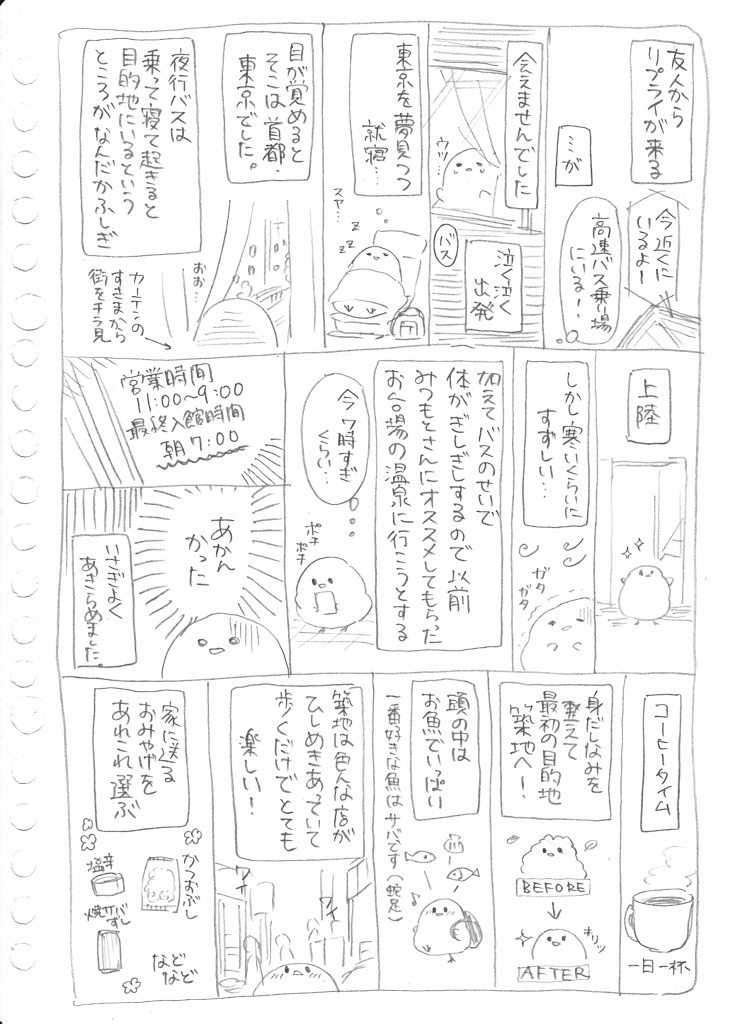 友人から
リプライが来る
今近くに
いるよー
…が
高速バス乗り場
にいる!
会えませんでした
ウッ…
バス
泣く泣く
出発
東京を夢見つつ
就寝…
スヤ…
zzz
目が覚めると
そこは首都・
東京でした。
おお…
夜行バスは
乗って寝て起きると
目的地にいるという
ところがなんだかふしぎ
カーテンの
すきまから
街をチラ見
上陸
しかし寒いくらいに
すずしい…
ガタ
ガタ
加えてバスのせいで
体がぎしぎしするので以前
みつもとさんにオススメしてもらった
お台場の温泉に行こうとする
今7時すぎ
ぐらい…
ポチ
ポチ
営業時間
11:00〜9:00
最終入館時間
朝7:00
あかん
かった
いさぎよく
あきらめました。
コーヒータイム
一日一杯
身だしなみを
整えて
最初の目的地
築地へ!
BEFORE
キリッ
AFTER
頭の中は
お魚でいっぱい
一番好きな魚はサバです(蛇足)
築地は色んな店が
ひしめきあっていて
歩くだけでとても
楽しい!
ワイ
ワイ
家に送る
おみやげを
あれこれ選ぶ
かつおぶし
塩辛
焼サバ
ずし
など
など